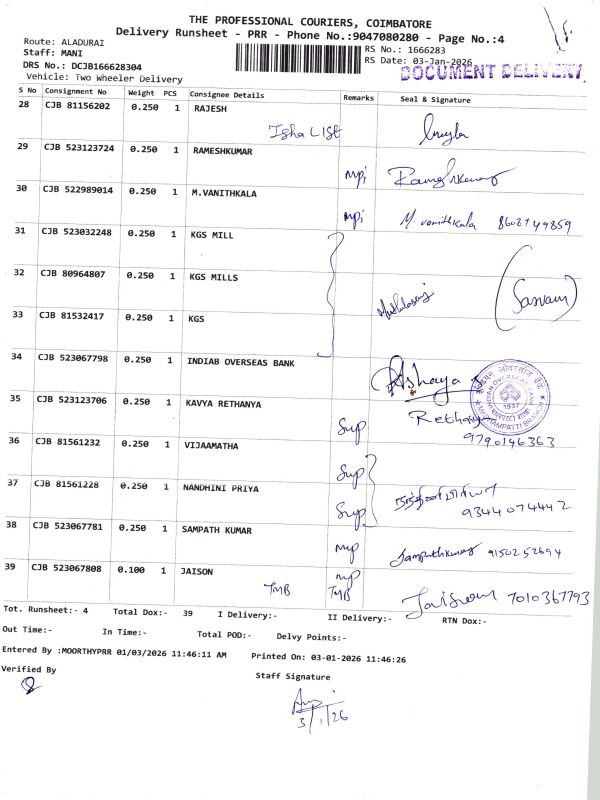 THE PROFESSIONAL COURIERS, COIMBATORE
Delivery Runsheet - PRR - Phone No.:9047080280 - Page No.:4
Route: ALADURAI
Staff: MANI
DRS No.: DCJB166628304
Vehicle: Two Wheeler Delivery
RS No.: 1666283
RS Date: 03-Jan-2026
DOCUMENT DELIVERY
S No Consignment No Weight PCS Consignee Details Remarks Seal & Signature
28 CJB 81156202 0.250 1 RAJESH
Isha LIST
29 CJB 523123724 0.250 1 RAMESHKUMAR
mpi Rameshkumar
30 CJB 522989014 0.250 1 M.VANITHKALA
mpi M. vanithkala 8602749859
31 CJB 523032248 0.250 1 KGS MILL
32 CJB 80964807 0.250 1 KGS MILLS
(Sarvam)
33 CJB 81532417 0.250 1 KGS
34 CJB 523067798 0.250 1 INDIAB OVERSEAS BANK
Akshaya
35 CJB 523123706 0.250 1 KAVYA RETHANYA
Sup Rethanya
9790146363
36 CJB 81561232 0.250 1 VIJAAMATHA
Sup
37 CJB 81561228 0.250 1 NANDHINI PRIYA
Sup 9344074442
38 CJB 523067781 0.250 1 SAMPATH KUMAR
mp Sampathkumar 9150252694
39 CJB 523067808 0.100 1 JAISON
mp
TMB TMB Jaison 7010367793
Tot. Runsheet:- 4 Total Dox:- 39 I Delivery:- II Delivery:- RTN Dox:-
Out Time:- In Time:- Total POD:- Delvy Points:-
Entered By :MOORTHYPRR 01/03/2026 11:46:11 AM Printed On: 03-01-2026 11:46:26
Verified By Staff Signature
3/1/26